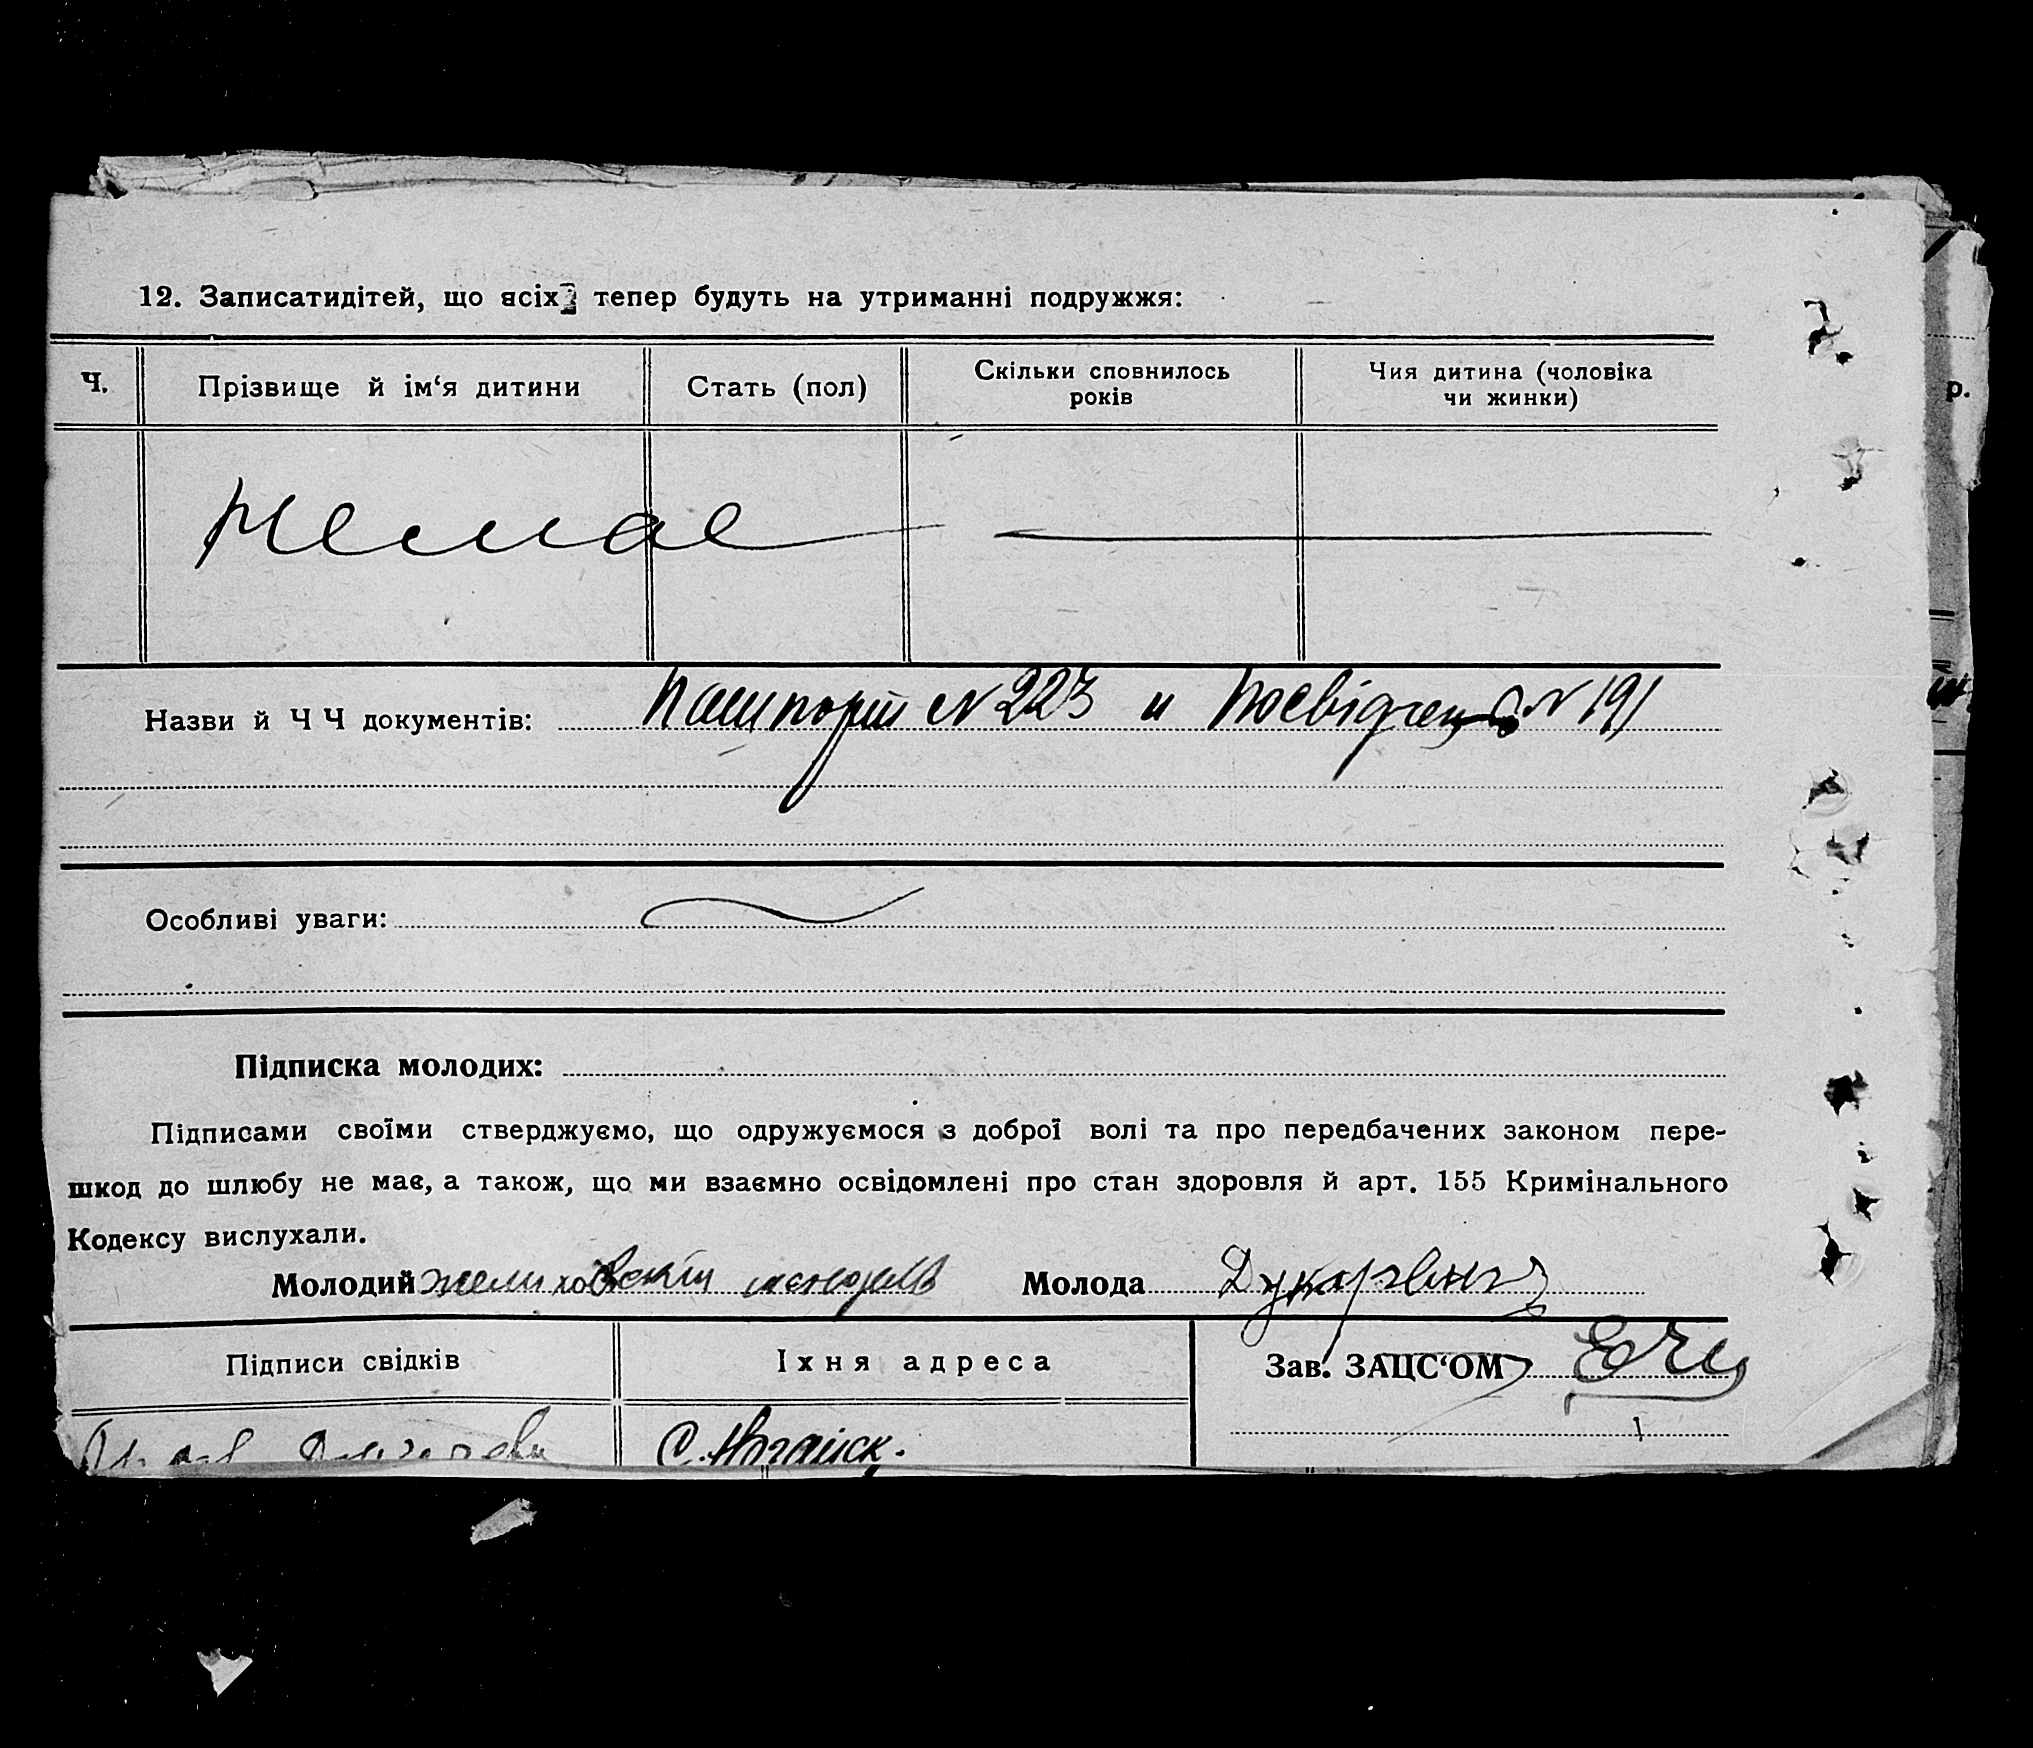 12. Записатидітей, що всіх тепер будуть на утриманні подружжя:
Ч.
Прізвище й ім‘я дитини
Стать (пол)
Скільки сповнилось
років
Чия дитина (чоловіка
чи жинки)
р.
Немае
Назви й Ч Ч документів: Пашпорт № 223 и Посвідчен № 191
Особливі уваги:
Підписка молодих:
Підписами своїми стверджуємо, що одружуємося з доброї волі та про передбачених законом пере-
шкод до шлюбу не має, а також, що ми взаємно освідомлені про стан здоровля й арт. 155 Кримінального
Кодексу вислухали.
Молодий Желиховский Молода
Підписи свідків
Їхня адреса
Зав. ЗАЦС‘ОМ
С. Ногайск.